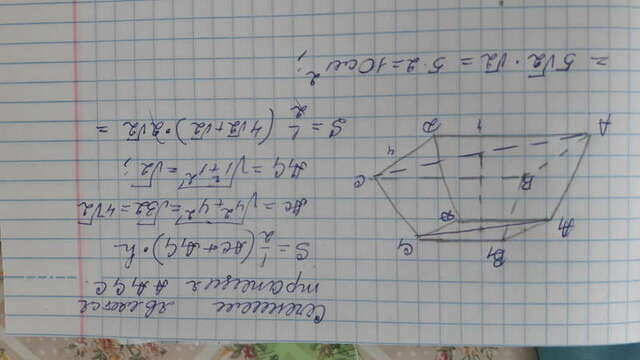 Сечением является
трапеция AA₁C₁C
S = 1/2 (AC + A₁C₁) · h
AC = √4²+4² = √32 = 4√2
A₁C₁ = √1²+1² = √2 ;
S = 1/2 (4√2+√2) · 2√2 =
= 5√2 · √2 = 5 · 2 = 10 см² ;
B₁ C₁
A₁
B C
4
A 4 D